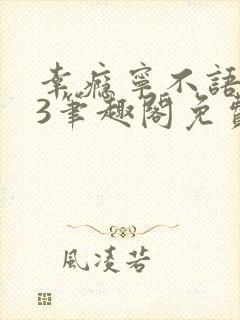 幸瘾宁不語
3筆趣閣免費
風凌若